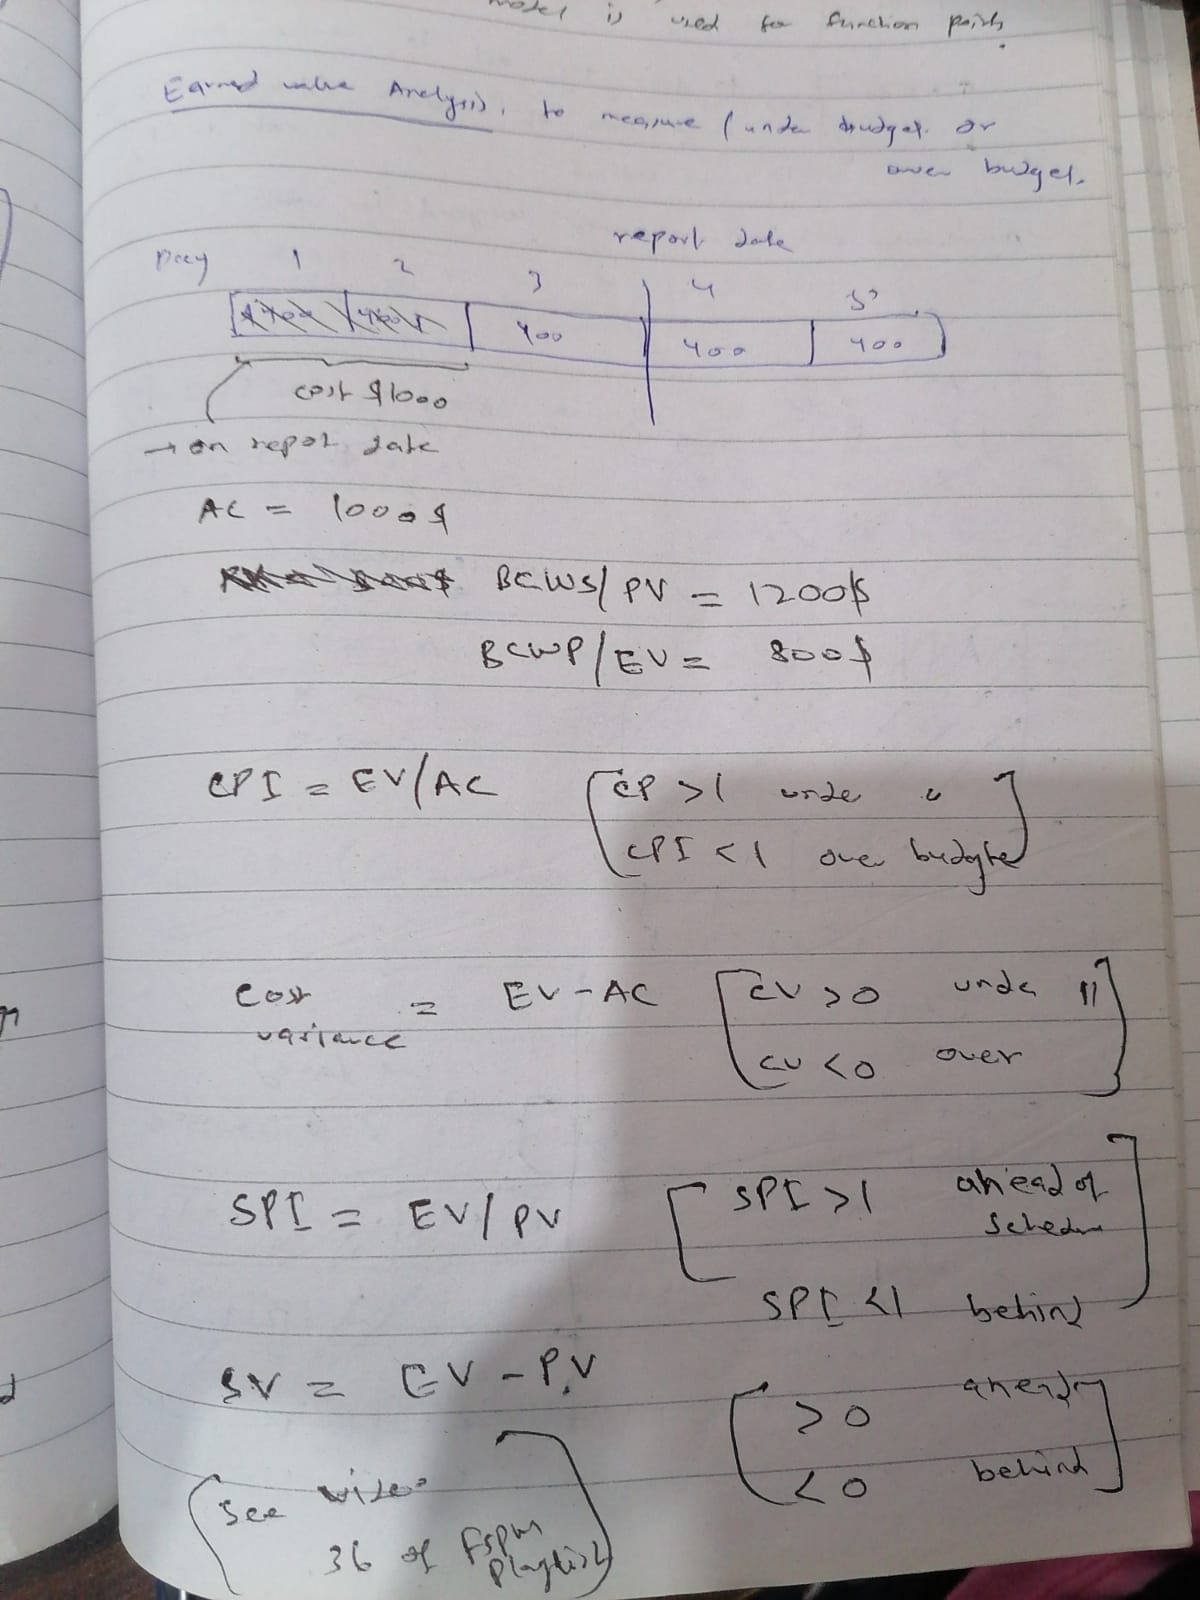 model is used for function points.
Earned value Analysis, to measure (under budget or
over budget.
report date
Day 1 2 3 4 5
400 400 400 400 400
cost $1000
→ on report date
AC = 1000$
BCWS/PV = 1200$
BCWP/EV = 800$
CPI = EV/AC [CP >1 under "]
[CPI <1 over budgte]
Cost variance = EV-AC [CV >0 under "]
[CV <0 over]
SPI = EV/PV [SPI >1 ahead of
schedu
SPI <1 behind]
SV = EV-PV [>0 ahead
<0 behind]
[See video
36 of FSPM
Playlist]